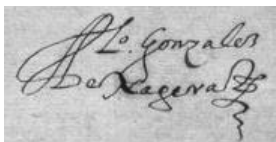 Lo. Gonzales
de Nagera